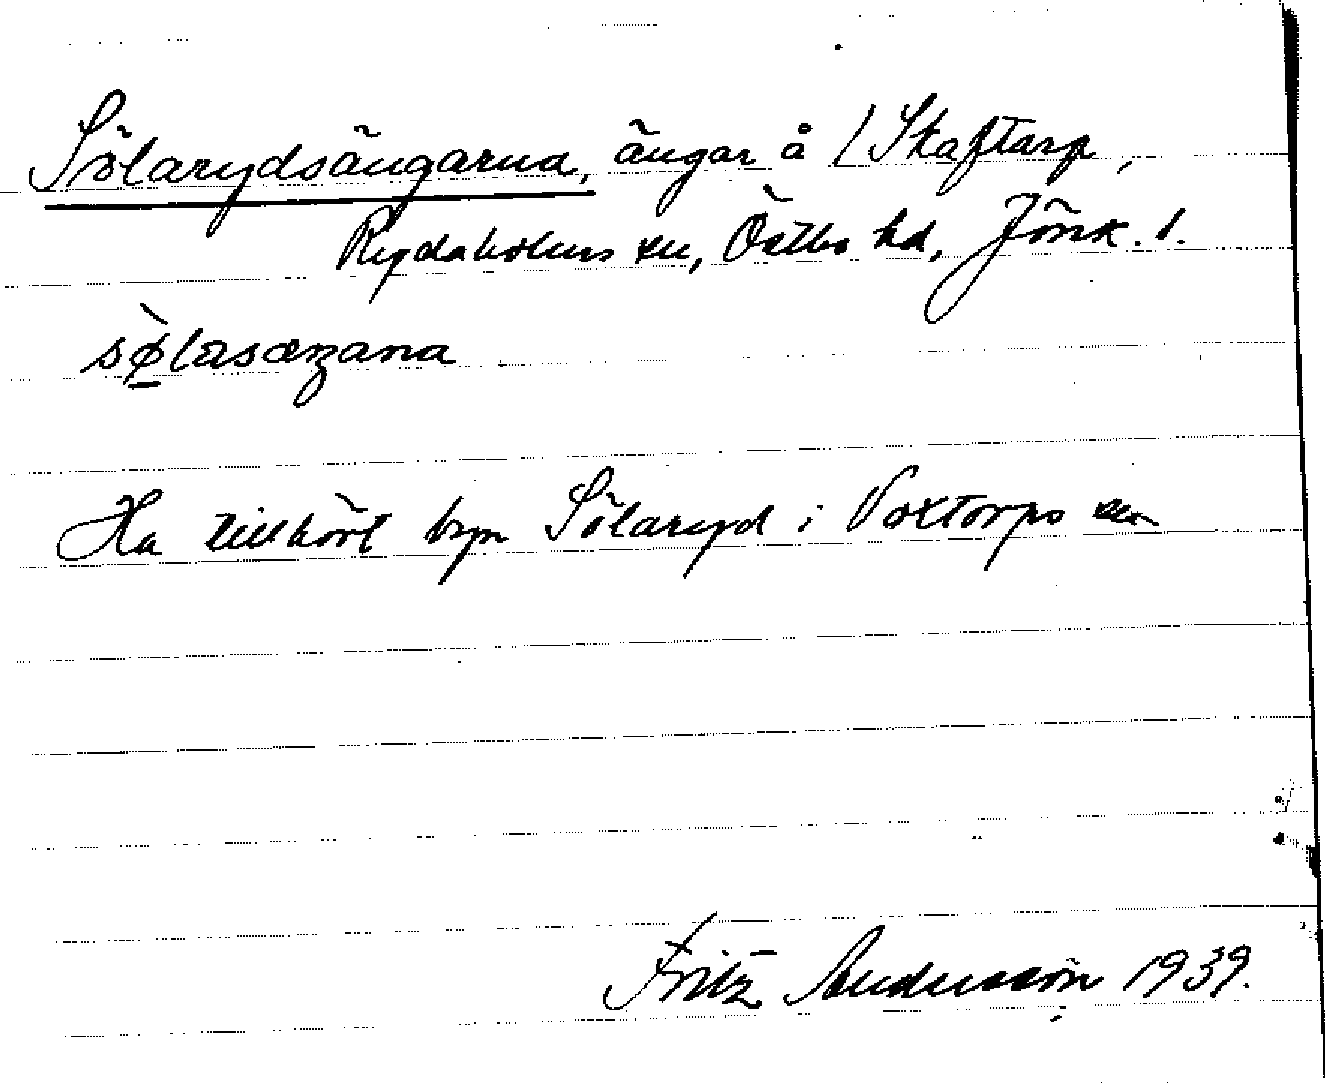 Sölarydsängarna, ängar å / Skaftarp,
Rydaholms sn, Östbo hd, Jönk. l.
sø̀lasæŋana
Ha tillhört byn Sölaryd i Voxtorps sn
Fritz Andersson 1939.